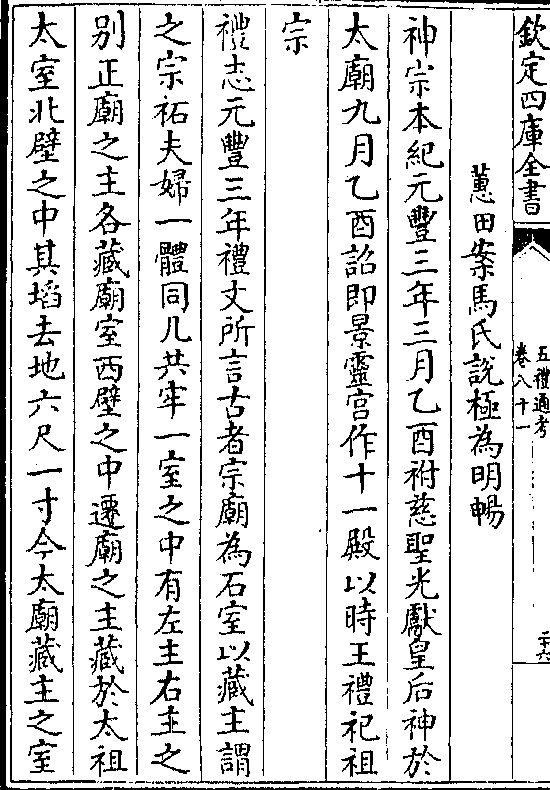 欽定四庫全書
五禮通考
卷八十一
二十六
蕙田案馬氏說極為明暢
神宗本紀元豐三年三月乙酉祔慈聖光獻皇后神於
太廟九月乙酉詔即景靈宮作十一殿以時王禮祀祖
宗
禮志元豐三年禮文所言古者宗廟為石室以藏主謂
之宗祏夫婦一體同几共牢一室之中有左主右主之
别正廟之主各藏廟室西壁之中遷廟之主藏於太祖
太室北壁之中其埳去地六尺一寸今太廟藏主之室